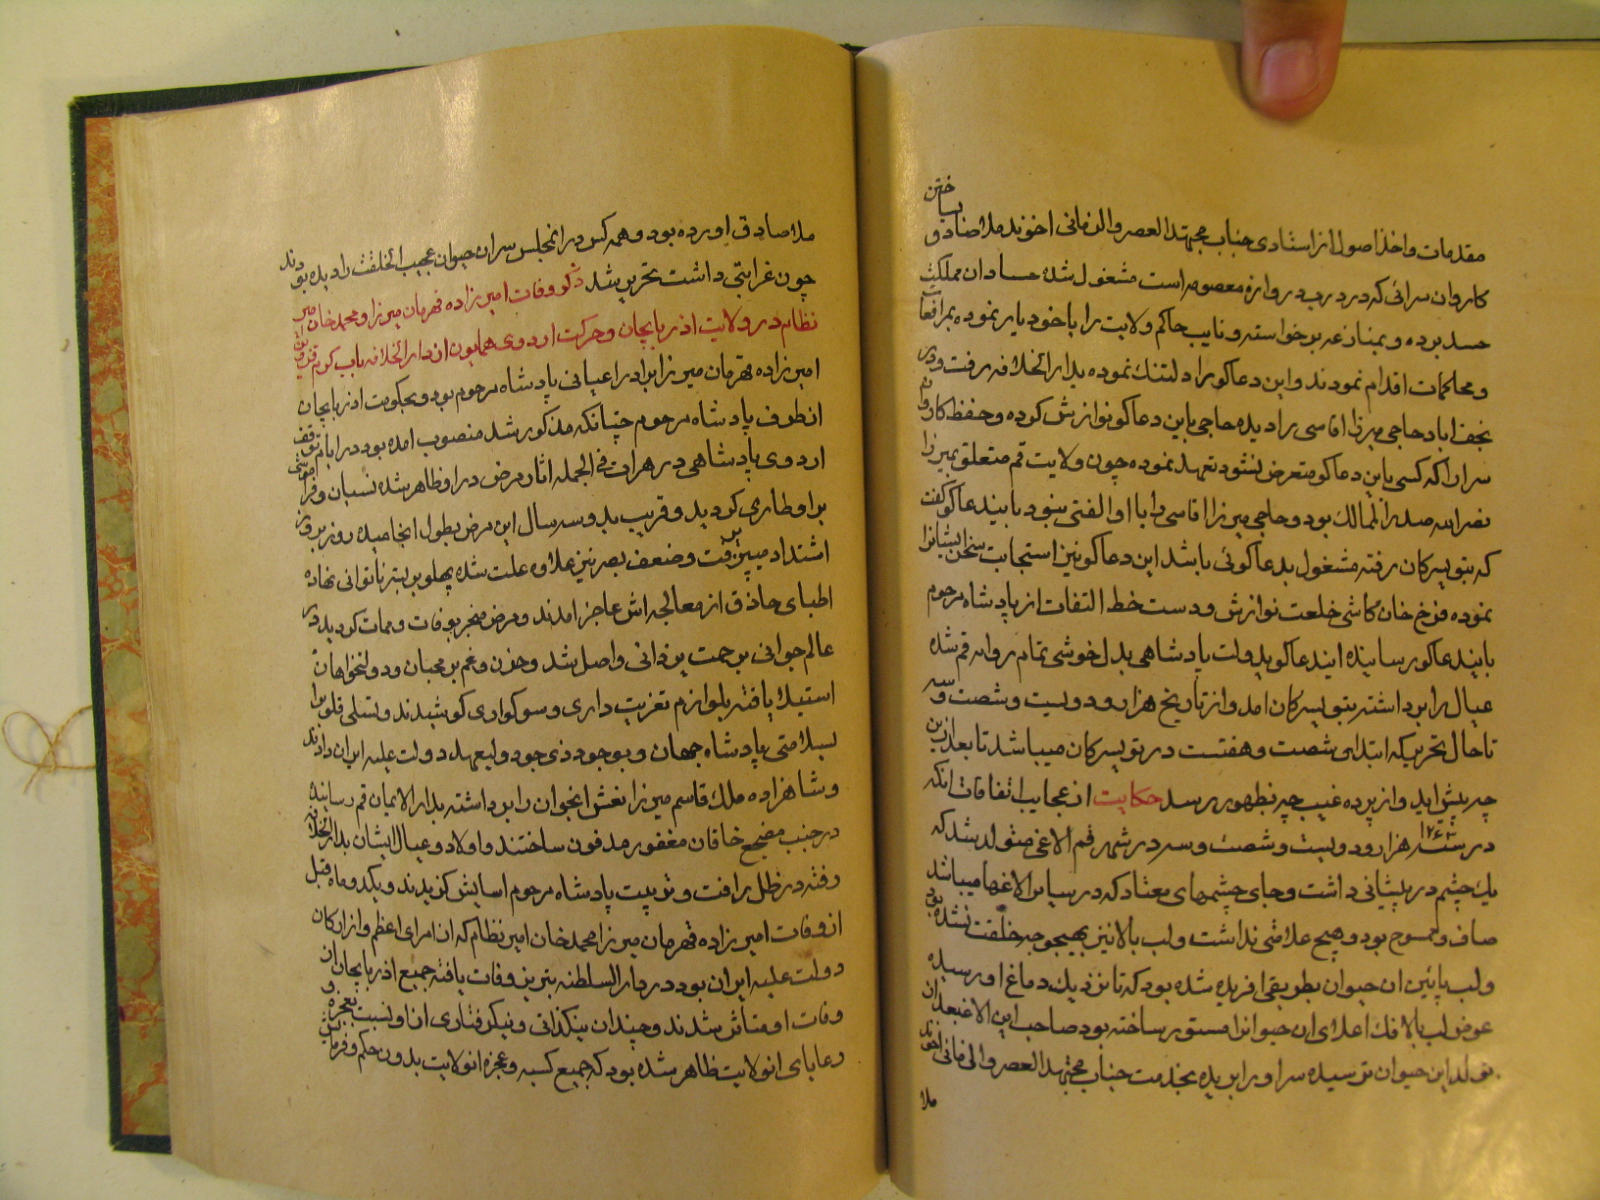 مقدمات واخذ اصول از استادی جناب مجتهد العصر والزمانی اخوند ملا صادق ساختن
کاروان سرائی که در درب دروازه معصومه است مشغول شده حسادان مملکت
حسد برده و بمنازعه برخواسته و نایب حاکم ولایت را با خود یار نموده بمرافعات
و محاکمات اقدام نمودند و این دعاکو را دلتنک نموده بدار الخلافه رفت و در
نجف اباد حاجی میرزا اقاسی را دیده حاجی باین دعاکو نوازش کرده و حفظ کاروان
سرا را که کسی باین دعاکو متعرض نشود تعهد نموده چون ولایت قم متعلق بمیرزا
نصر الله صدر الممالک بود و حاجی میرزا اقاسی را با او الفتی نبود باینداعاکو کفت
که بتویسرکان رفته مشغول بدعاکوئی باشد این دعاکو نیز استجابت سخن ایشانرا
نموده فرخ خان کاشی خلعت نوازش و دست خط التفات از پادشاه مرحوم
باینداعاکو رسانیده ایندعاکو بدولت پادشاهی بدل خوشی تمام روانه قم شده
عیال را برداشته بتویسرکان امد و از تاریخ هزار و دویست و شصت و سه
تا حال تحریر که ابتدای شصت و هفتست در تویسرکان میباشد تا بعد از این
چه پیش اید و از پرده غیب چه بظهور رسد حکایت از عجایب اتفاقات انکه
در سنه ۱۲۶۳ هزار و دویست و شصت و سه در شهر قم الاغی متولد شد که
یک چشم در پیشانی داشت و جای چشمهای معتاد که در سایر الاغها میباشد
صاف و ممسوح بود و هیچ علامتی نداشت و لب بالا نیز بهیچوجه خلقت نشده بود
و لب پائین ان حیوان بطریقی افریده شده بود که تا نزدیک دماغ او رسیده
عوض لب بالا فک اعلای ان حیوانرا مستور ساخته بود صاحب این الاغ بعد از ان
تولد این حیوان ترسیده سر او را بریده بخدمت جناب مجتهد العصر والزمانی اخوند
ملا
ملا صادق اورده بود و همه کس در انمجلس سر ان حیوان عجیب الخلقت را دیده بودند
چون غرابتی داشت تحریر شد ذکر وفات امیرزاده قهرمان میرزا و محمد خان امیر
نظام در ولایت اذربایجان و حرکت اردوی همایون از دار الخلافه باب کرم قزوین
امیرزاده قهرمان میرزا برادر اعیانی پادشاه مرحوم بود و بحکومت اذربایجان
از طرف پادشاه مرحوم چنانکه مذکور شد منصوب امده بود در ایام توقف
اردوی پادشاهی در هرات فی الجمله اثار مرض در او ظاهر شده نسیان و فراموشی
بر او طاری کردید و قریب بدو سه سال این مرض بطول انجامیده روز بروز
اشتداد میپذیرفت و ضعف بصر نیز علاوه علت شده پهلو بر بستر ناتوانی نهاده
اطبای حاذق از معالجه اش عاجز امدند و مرض منجر بوفات و ممات کردید در
عالم جوانی برحمت یزدانی واصل شد و حزن و غم بر محبان و دولتخواهان
استیلا یافته بلوازم تعزیت داری و سوکواری کوشیدند و تسلی قلوب را
بسلامتی پادشاه جمهان و بوجود ذی جود ولیعهد دولت علیه ایران دادند
و شاهزاده ملک قاسم میرزا نعش انجوان را برداشته بدار الایمان قم رسانیده
در جنب مضجع خاقان مغفور مدفون ساختند و اولاد و عیال ایشان بدار الخلافه
رفته در ظل رافت و تربیت پادشاه مرحوم اسایش کزیدند و یکدو ماه قبل
از وفات امیرزاده قهرمان میرزا محمد خان امیر نظام که از امرای اعظم و از ارکان
دولت علیه ایران بود در دار السلطنه تبریز وفات یافته جمیع اذربایجان از
وفات او متاثر شدند و چندان نیکذاتی و نیکرفتاری از او نسبت بعجزه و
رعایای انولایت ظاهر شده بود که جمیع کسبه و عجزه انولایت بدون حکم و فرمایش